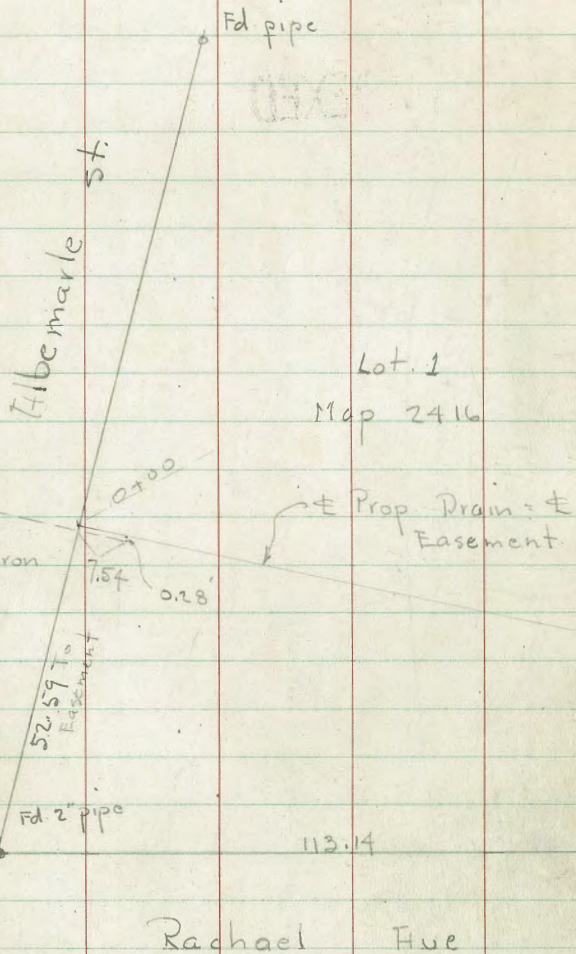 Fd. pipe
Albemarle St.
Lot. 1
Map 2416
0+00
℄ Prop Drain = ℄
Easement
7.54
0.28'
52.59 To
Easement
Fd. 2" pipe
113.14
Rachael Ave